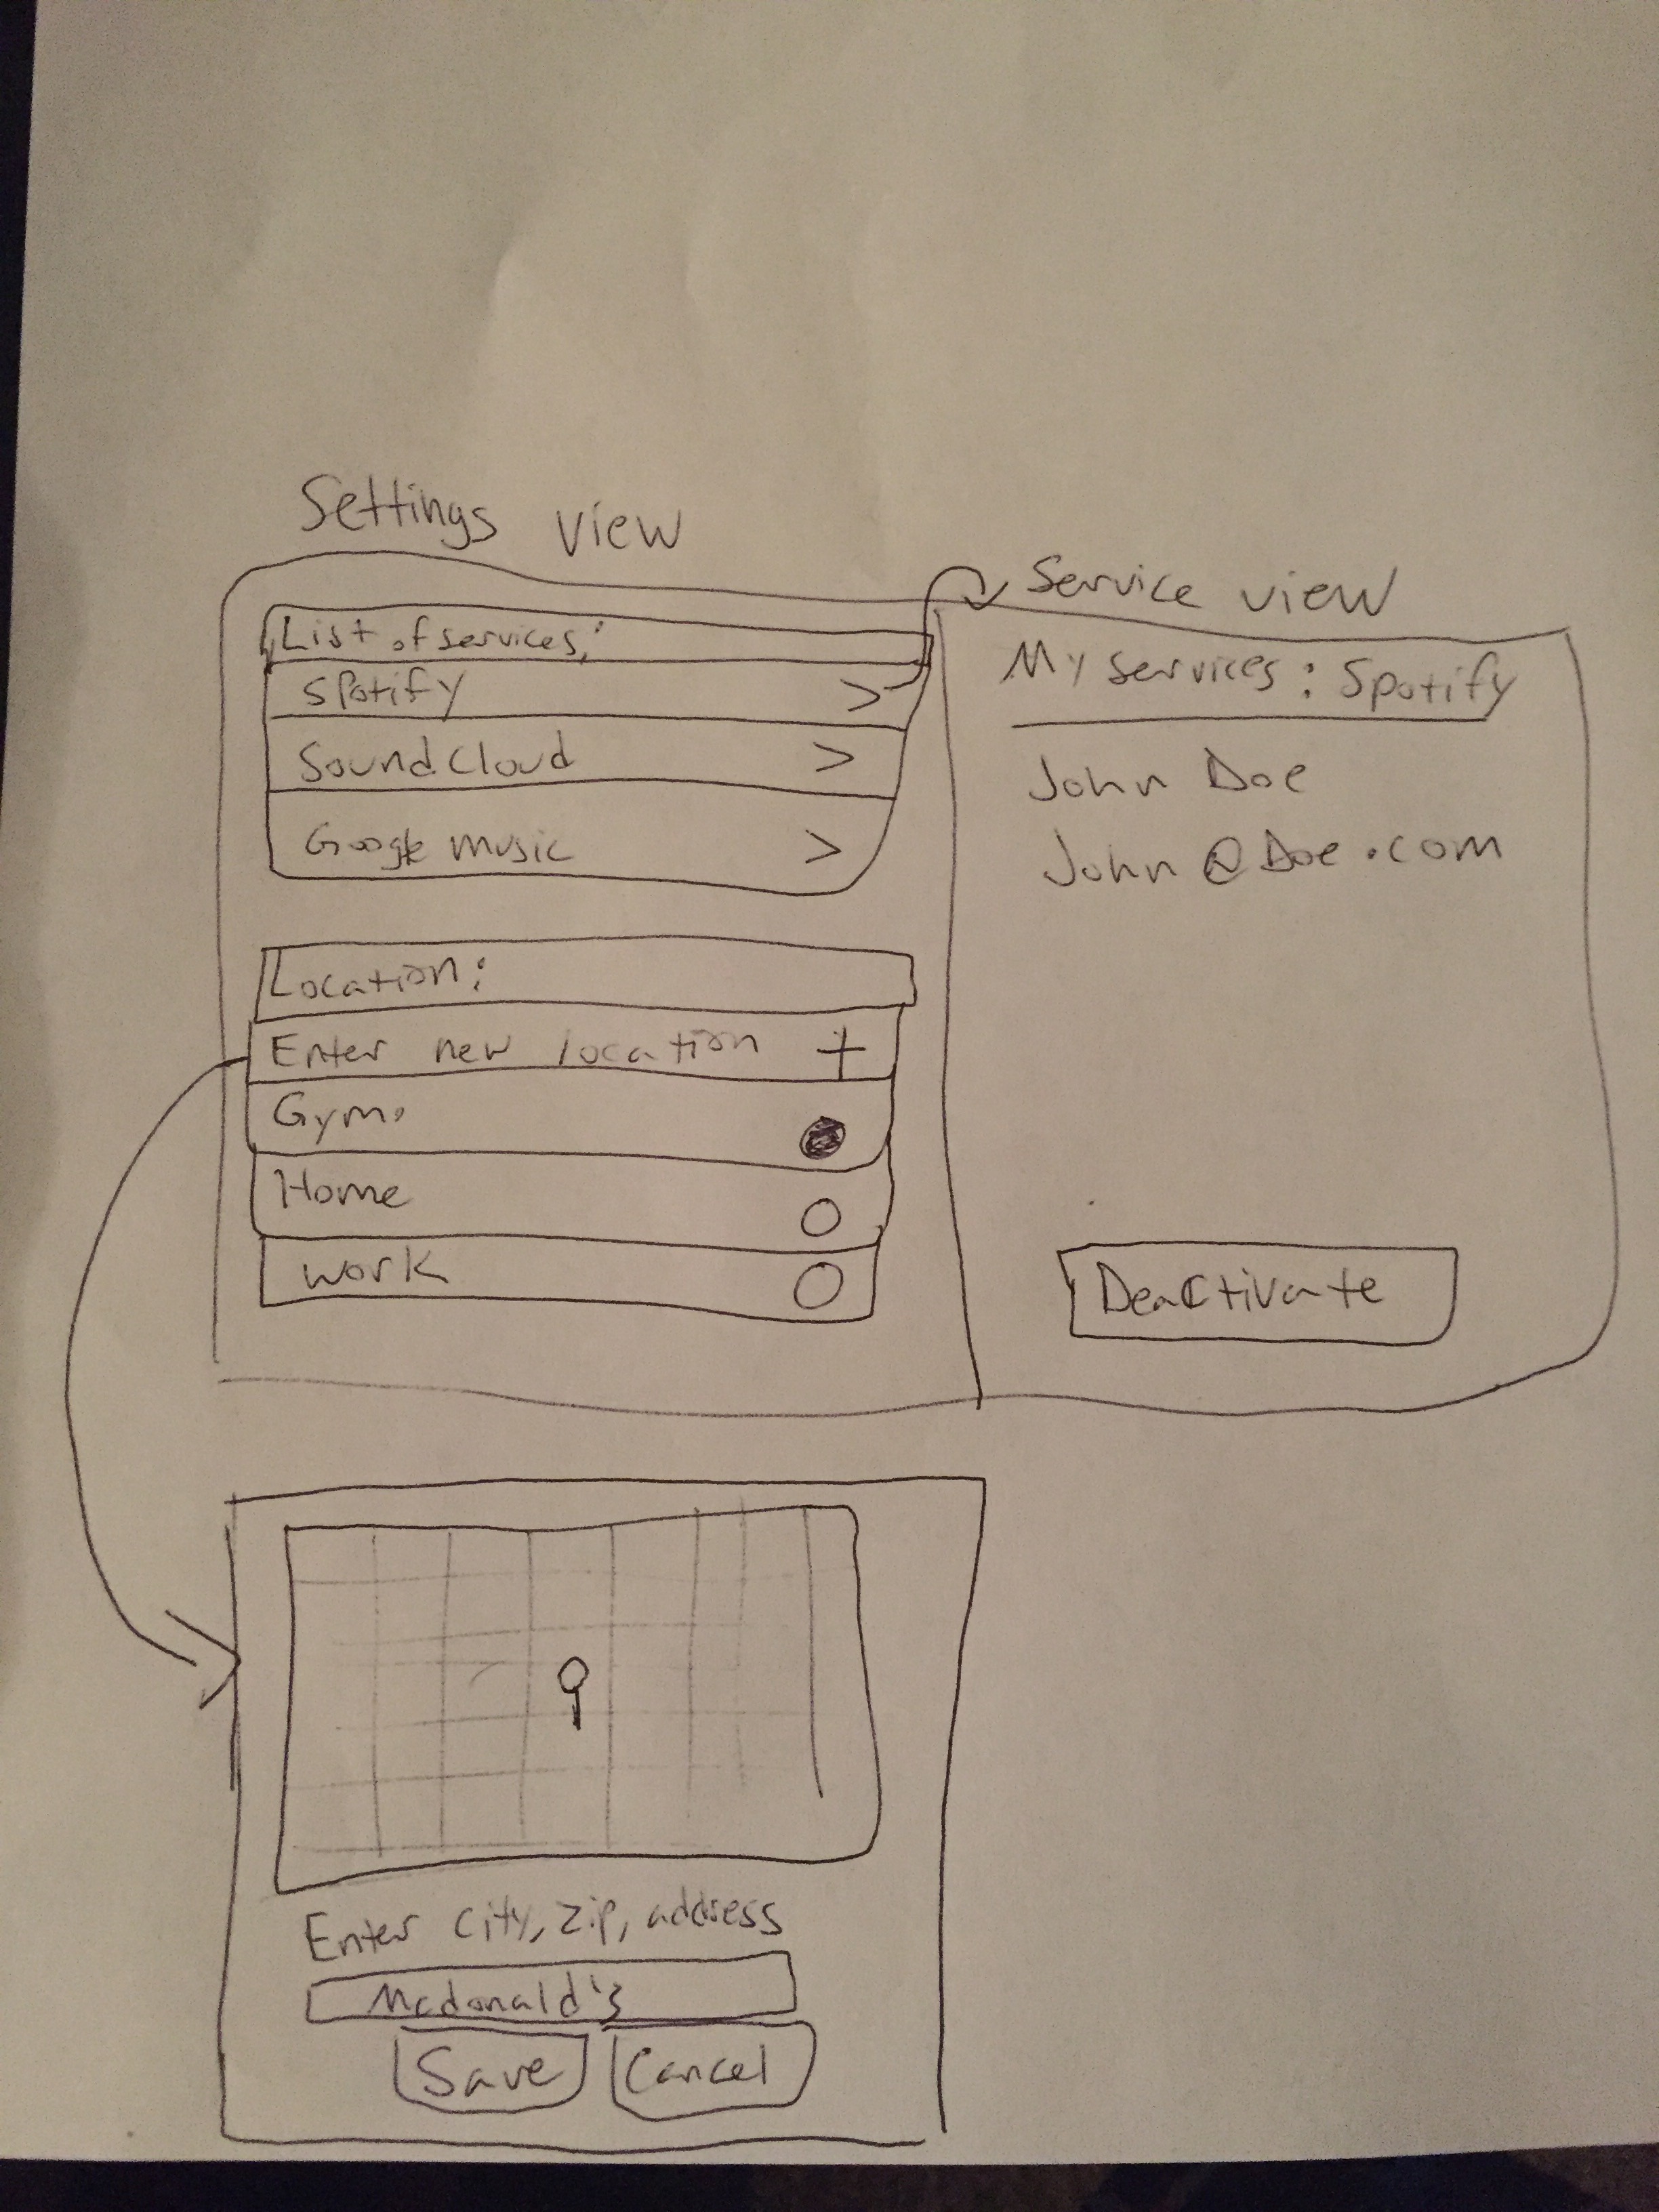 Settings view
List of services:
Spotify >
SoundCloud >
Google music >
Location:
Enter new location +
Gym
Home
work
Service view
My services: Spotify
John Doe
John@Doe.com
Deactivate
Enter city, zip, address
Mcdonald's
Save Cancel